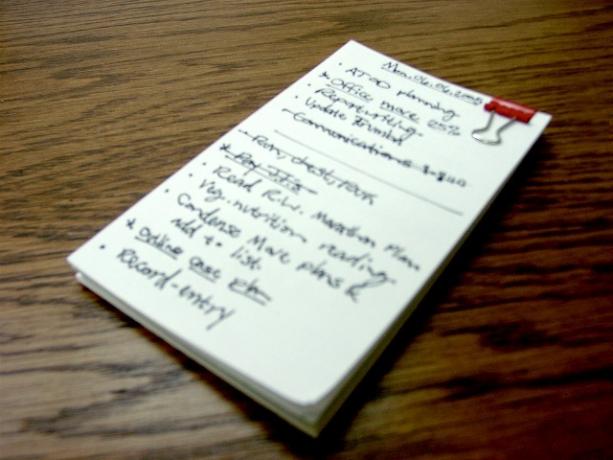 Mon. 06.06.2005
• AT&D planning
* Office move 25%
• Reportwriting
• Update
– Communications
– Run, chest, back
* Pay
• Read R.W. Marathon Plan
• Veg. nutrition reading
• Condense Move plans &
add to list.
* Online
• Record-entry